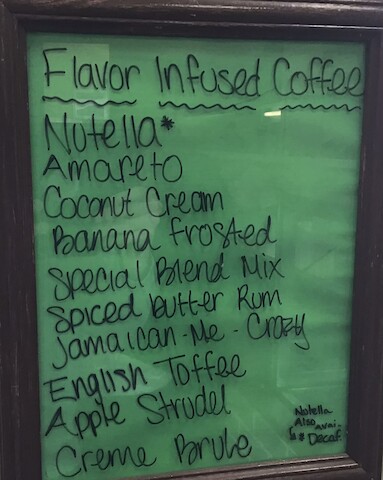 Flavor Infused Coffee
Nutella*
Amareto
Coconut Cream
Banana Frosted
Special Blend Mix
Spiced butter Rum
Jamaican-Me-Crazy
English Toffee
Apple Strudel
Creme Brule
Nutella
Also
Avai-
Decaf.